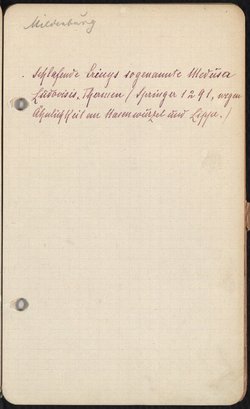 Mildenburg
Schlafende Erinys sogenannte Medusa
Ludovisi, Thermen / Springer 1291, wegen
Ähnlichkeit um Nasenwurzel und Lippe. /